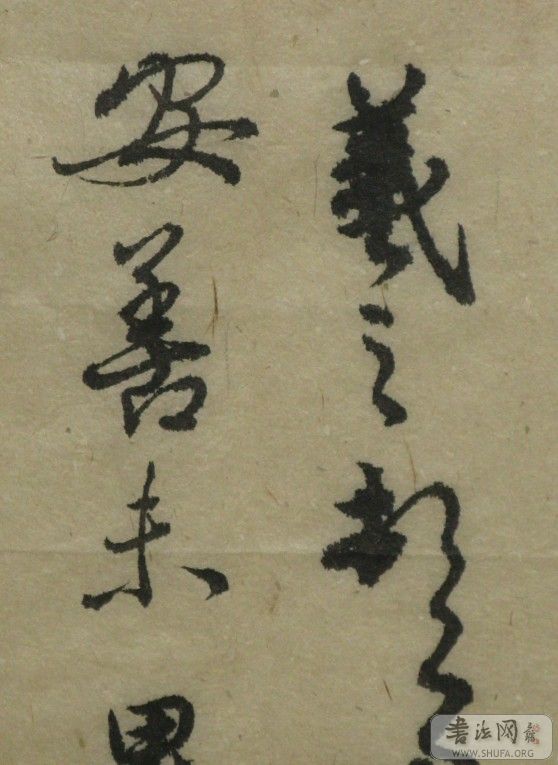 羲之頓
安善未果
書法网
WWW.SHUFA.ORG